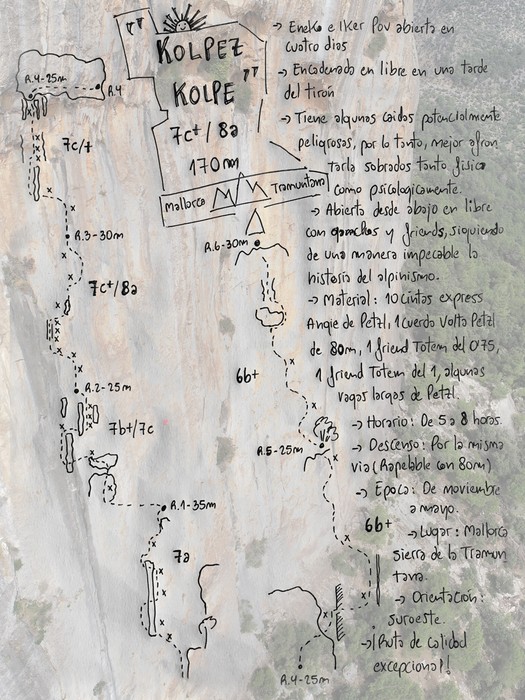 "KOLPEZ
KOLPE"
7c+/8a
170m
Mallorca Tramuntana
→ Eneko e Iker Pou abierta en
cuatro dias
→ Encadenada en libre en una tarde
del tirón
→ Tiene algunas caidas potencialmente
peligrosas, por lo tanto, mejor afron
tarla sobrados tanto física
como psicologicamente.
→ Abierta desde abajo en libre
con ganchos y friends, siguiendo
de una manera impecable la
historia del alpinismo.
→ Material: 10 cintas express
Angie de Petzl, 1 Cuerda Volta Petzl
de 80m, 1 friend Totem del 0'75,
1 friend Totem del 1, algunas
vagas largas de Petzl.
→ Horario: De 5 a 8 horas.
→ Descenso: Por la misma
via (Rapelable con 80m)
→ Epoca: De noviembre
a mayo.
→ Lugar: Mallorca
Sierra de la Tramun
tana
→ Orientación:
suroeste.
→ ¡Ruta de calidad
excepcional!
R.4-25m
R.4
7c/+
R.3-30m
7c+/8a
R.2-25m
7b+/7c
R.1-35m
7a
R.6-30m
6b+
R.5-25m
6b+
R.4-25m